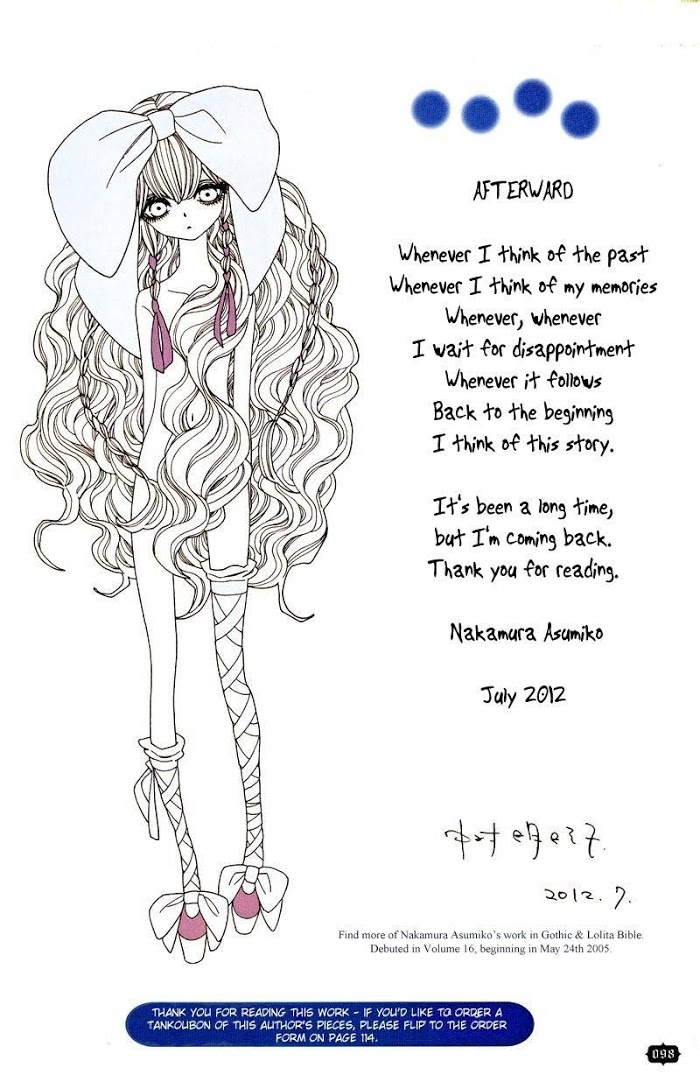 AFTERWARD
Whenever I think of the past
Whenever I think of my memories
Whenever, whenever
I wait for disappointment
Whenever it follows
Back to the beginning
I think of this story.
It's been a long time,
but I'm coming back.
Thank you for reading.
Nakamura Asumiko
July 2012
中村明日美子
2012.7.
Find more of Nakamura Asumiko's work in Gothic & Lolita Bible.
Debuted in Volume 16, beginning in May 24th 2005.
THANK YOU FOR READING THIS WORK - IF YOU'D LIKE TO ORDER A
TANKOUBON OF THIS AUTHOR'S PIECES, PLEASE FLIP TO THE ORDER
FORM ON PAGE 114.
098